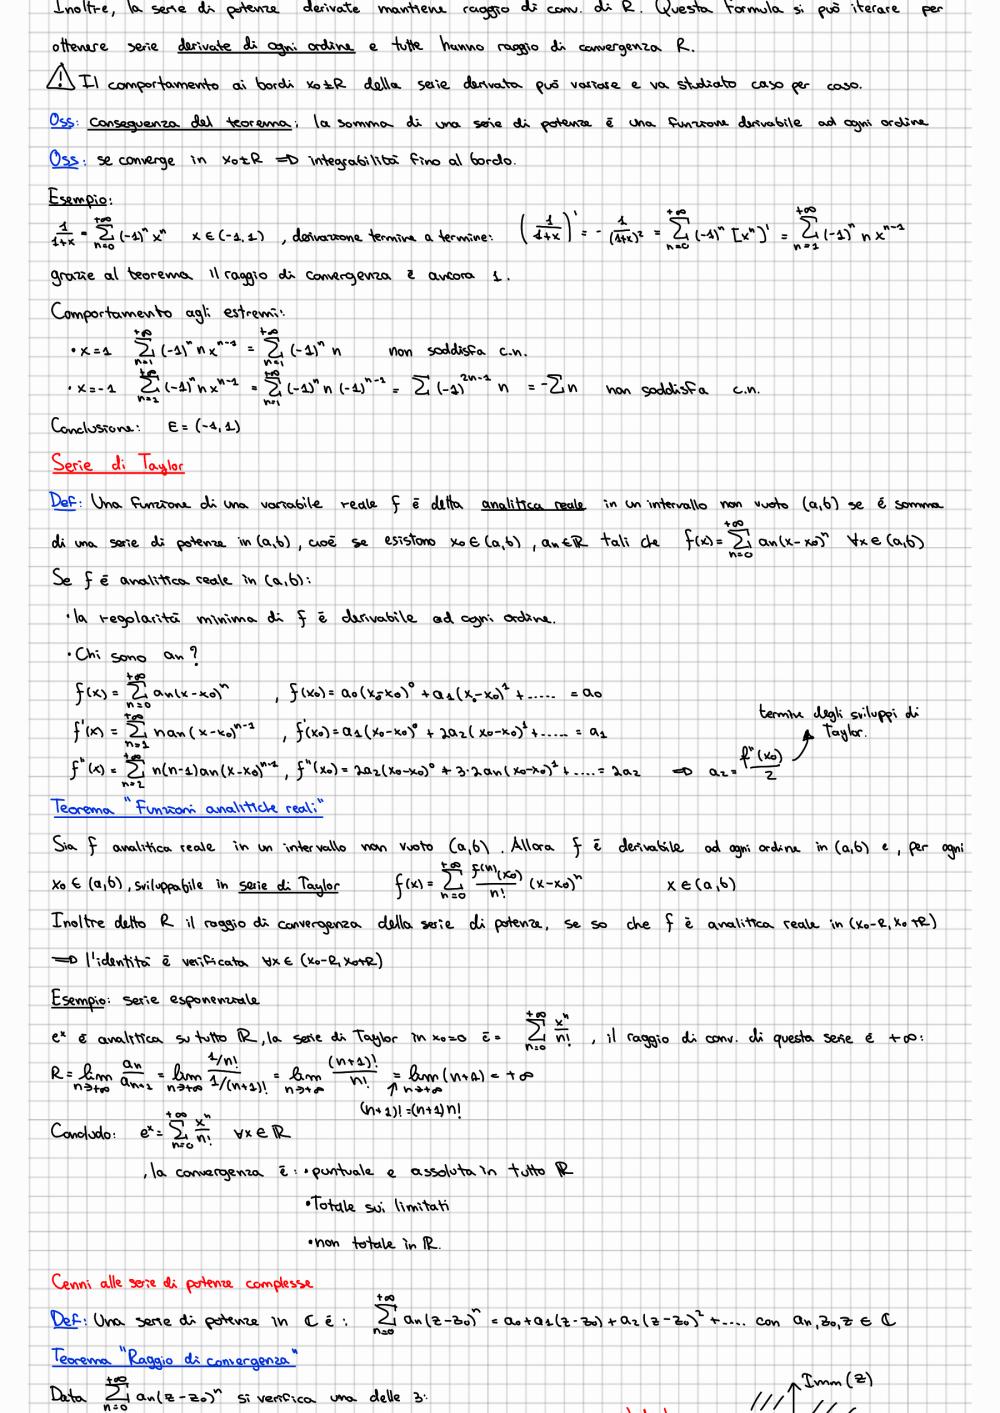 Inoltre, la serie di potenze derivate mantiene raggio di conv. di R. Questa formula si può iterare per
ottenere serie derivate di ogni ordine e tutte hanno raggio di convergenza R.
⚠ Il comportamento ai bordi x₀±R della serie derivata può variare e va studiato caso per caso.
Oss: conseguenza del teorema: la somma di una serie di potenze è una funzione derivabile ad ogni ordine
Oss: se converge in x₀±R ⇒ integrabilità fino al bordo.
Esempio:
1/(1+x) = Σ_{n=0}^{+∞} (-1)ⁿ xⁿ x∈(-1,1) , derivazione termine a termine: (1/(1+x))' = - 1/(1+x)² = Σ_{n=0}^{+∞} (-1)ⁿ [xⁿ]' = Σ_{n=1}^{+∞} (-1)ⁿ n xⁿ⁻¹
grazie al teorema il raggio di convergenza è ancora 1.
Comportamento agli estremi:
• x=1 Σ_{n=1}^{+∞} (-1)ⁿ n xⁿ⁻¹ = Σ_{n=1}^{+∞} (-1)ⁿ n non soddisfa c.n.
• x=-1 Σ_{n=1}^{+∞} (-1)ⁿ n xⁿ⁻¹ = Σ_{n=1}^{+∞} (-1)ⁿ n (-1)ⁿ⁻¹ = Σ (-1)²ⁿ⁻¹ n = -Σ n non soddisfa c.n.
Conclusione: E = (-1,1)
Serie di Taylor
Def: Una funzione di una variabile reale f è detta analitica reale in un intervallo non vuoto (a,b) se è somma
di una serie di potenze in (a,b), cioè se esistono x₀∈(a,b), an∈ℝ tali che f(x) = Σ_{n=0}^{+∞} an(x-x₀)ⁿ ∀x∈(a,b)
Se f è analitica reale in (a,b):
• la regolarità minima di f è derivabile ad ogni ordine.
• Chi sono an?
f(x) = Σ_{n=0}^{+∞} an(x-x₀)ⁿ , f(x₀) = a₀(x₀-x₀)⁰ + a₁(x₀-x₀)¹ + ..... = a₀
f'(x) = Σ_{n=1}^{+∞} nan(x-x₀)ⁿ⁻¹ , f'(x₀) = a₁(x₀-x₀)⁰ + 2a₂(x₀-x₀)¹ + ..... = a₁
termine degli sviluppi di Taylor.
f"(x) = Σ_{n=2}^{+∞} n(n-1)an(x-x₀)ⁿ⁻² , f"(x₀) = 2a₂(x₀-x₀)⁰ + 3·2an(x₀-x₀)¹ + .... = 2a₂ ⇒ a₂ = f"(x₀)/2
Teorema "Funzioni analitiche reali"
Sia f analitica reale in un intervallo non vuoto (a,b). Allora f è derivabile ad ogni ordine in (a,b) e, per ogni
x₀ ∈ (a,b), sviluppabile in serie di Taylor f(x) = Σ_{n=0}^{+∞} f⁽ⁿ⁾(x₀)/n! (x-x₀)ⁿ x∈(a,b)
Inoltre detto R il raggio di convergenza della serie di potenze, se so che f è analitica reale in (x₀-R, x₀+R)
⇒ l'identità è verificata ∀x∈(x₀-R, x₀+R)
Esempio: serie esponenziale
eˣ è analitica su tutto ℝ, la serie di Taylor in x₀=0 è = Σ_{n=0}^{+∞} xⁿ/n! , il raggio di conv. di questa serie è +∞:
R = lim_{n→+∞} an/an+1 = lim_{n→+∞} (1/n!)/(1/(n+1)!) = lim_{n→+∞} (n+1)!/n! = lim_{n→+∞} (n+1) = +∞
(n+1)! = (n+1)n!
Concludo: eˣ = Σ_{n=0}^{+∞} xⁿ/n! ∀x∈ℝ
, la convergenza è: • puntuale e assoluta in tutto ℝ
• Totale sui limitati
• non totale in ℝ.
Cenni alle serie di potenze complesse
Def: Una serie di potenze in ℂ è: Σ_{n=0}^{+∞} an(z-z₀)ⁿ = a₀+a₁(z-z₀)+a₂(z-z₀)²+.... con an,z₀,z ∈ ℂ
Teorema "Raggio di convergenza"
Data Σ_{n=0}^{+∞} an(z-z₀)ⁿ si verifica una delle 3:
Imm(z)